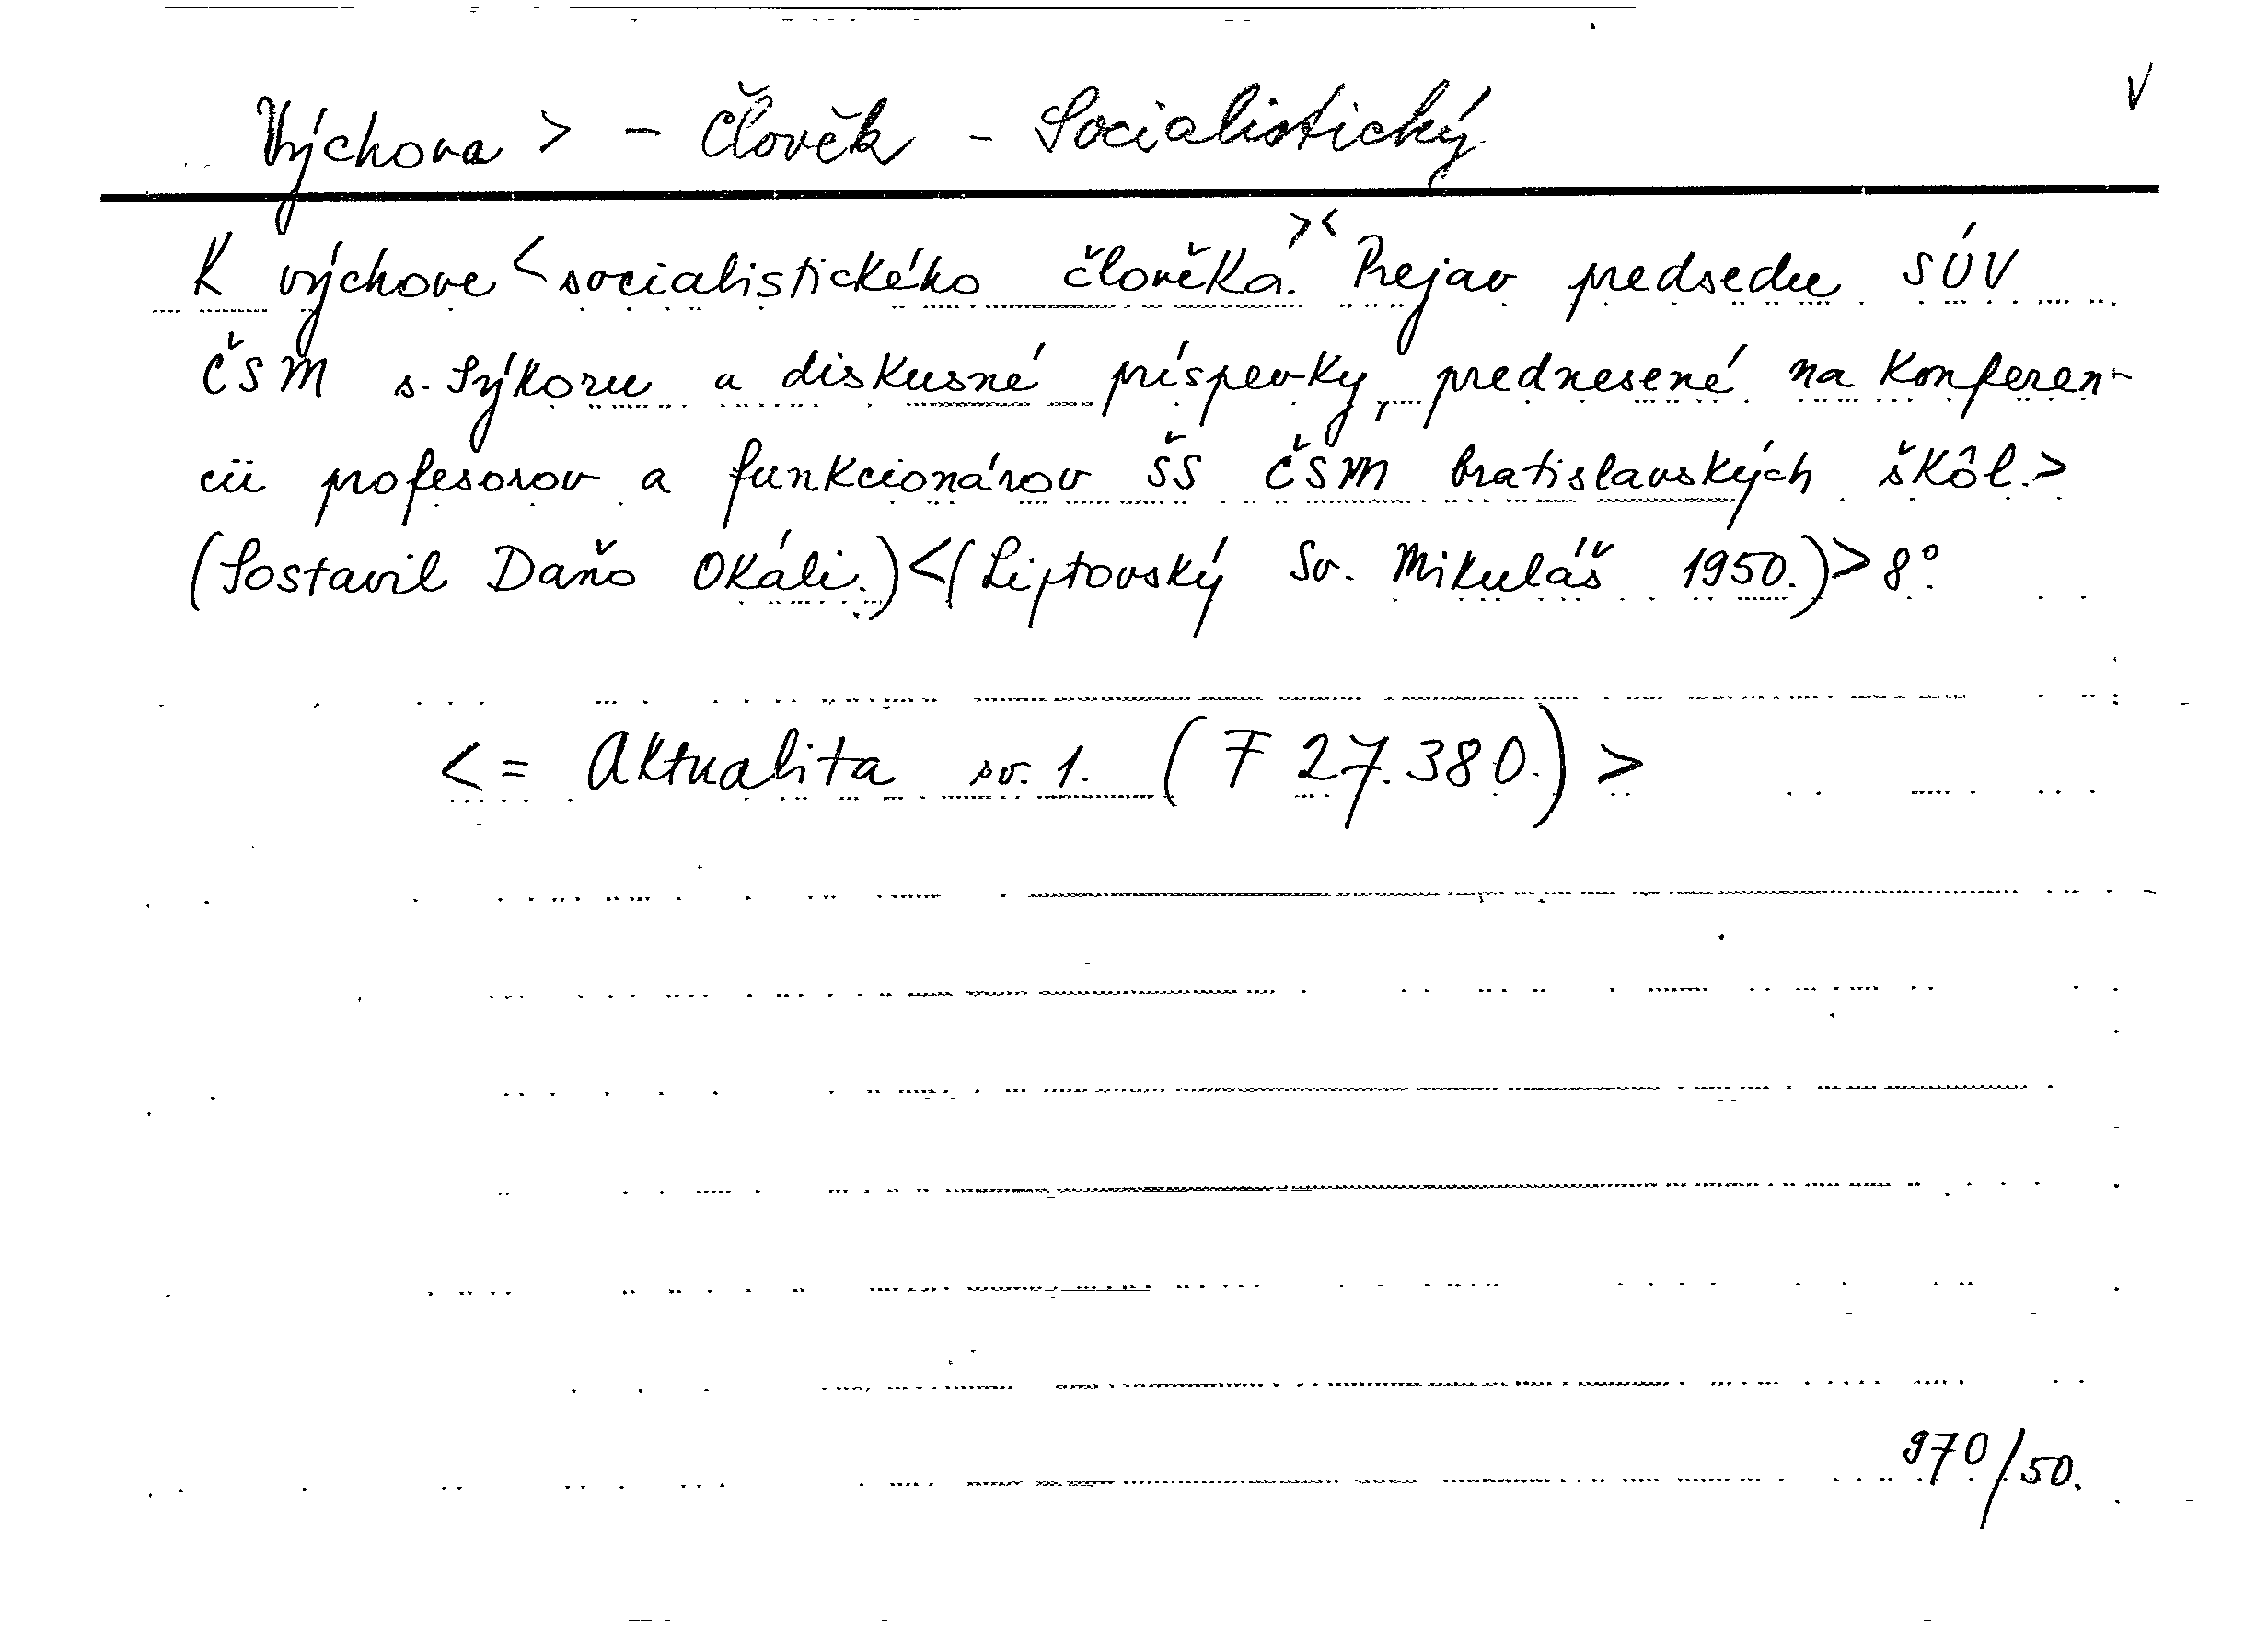 V
Výchova > - Člověk - Socialistický
K výchove < socialistického člověka. >< Prejav predsedu SÚV
ČSM s. Sýkoru a diskusné príspevky, prednesené na konferen-
cii profesorov a funkcionárov ŠS ČSM bratislavských škôl. >
(Sostavil Daňo Okáli.) < (Liptovský Sv. Mikuláš 1950.) > 8°.
< = Aktualita sv. 1. (F 27.380.) >
970/50.